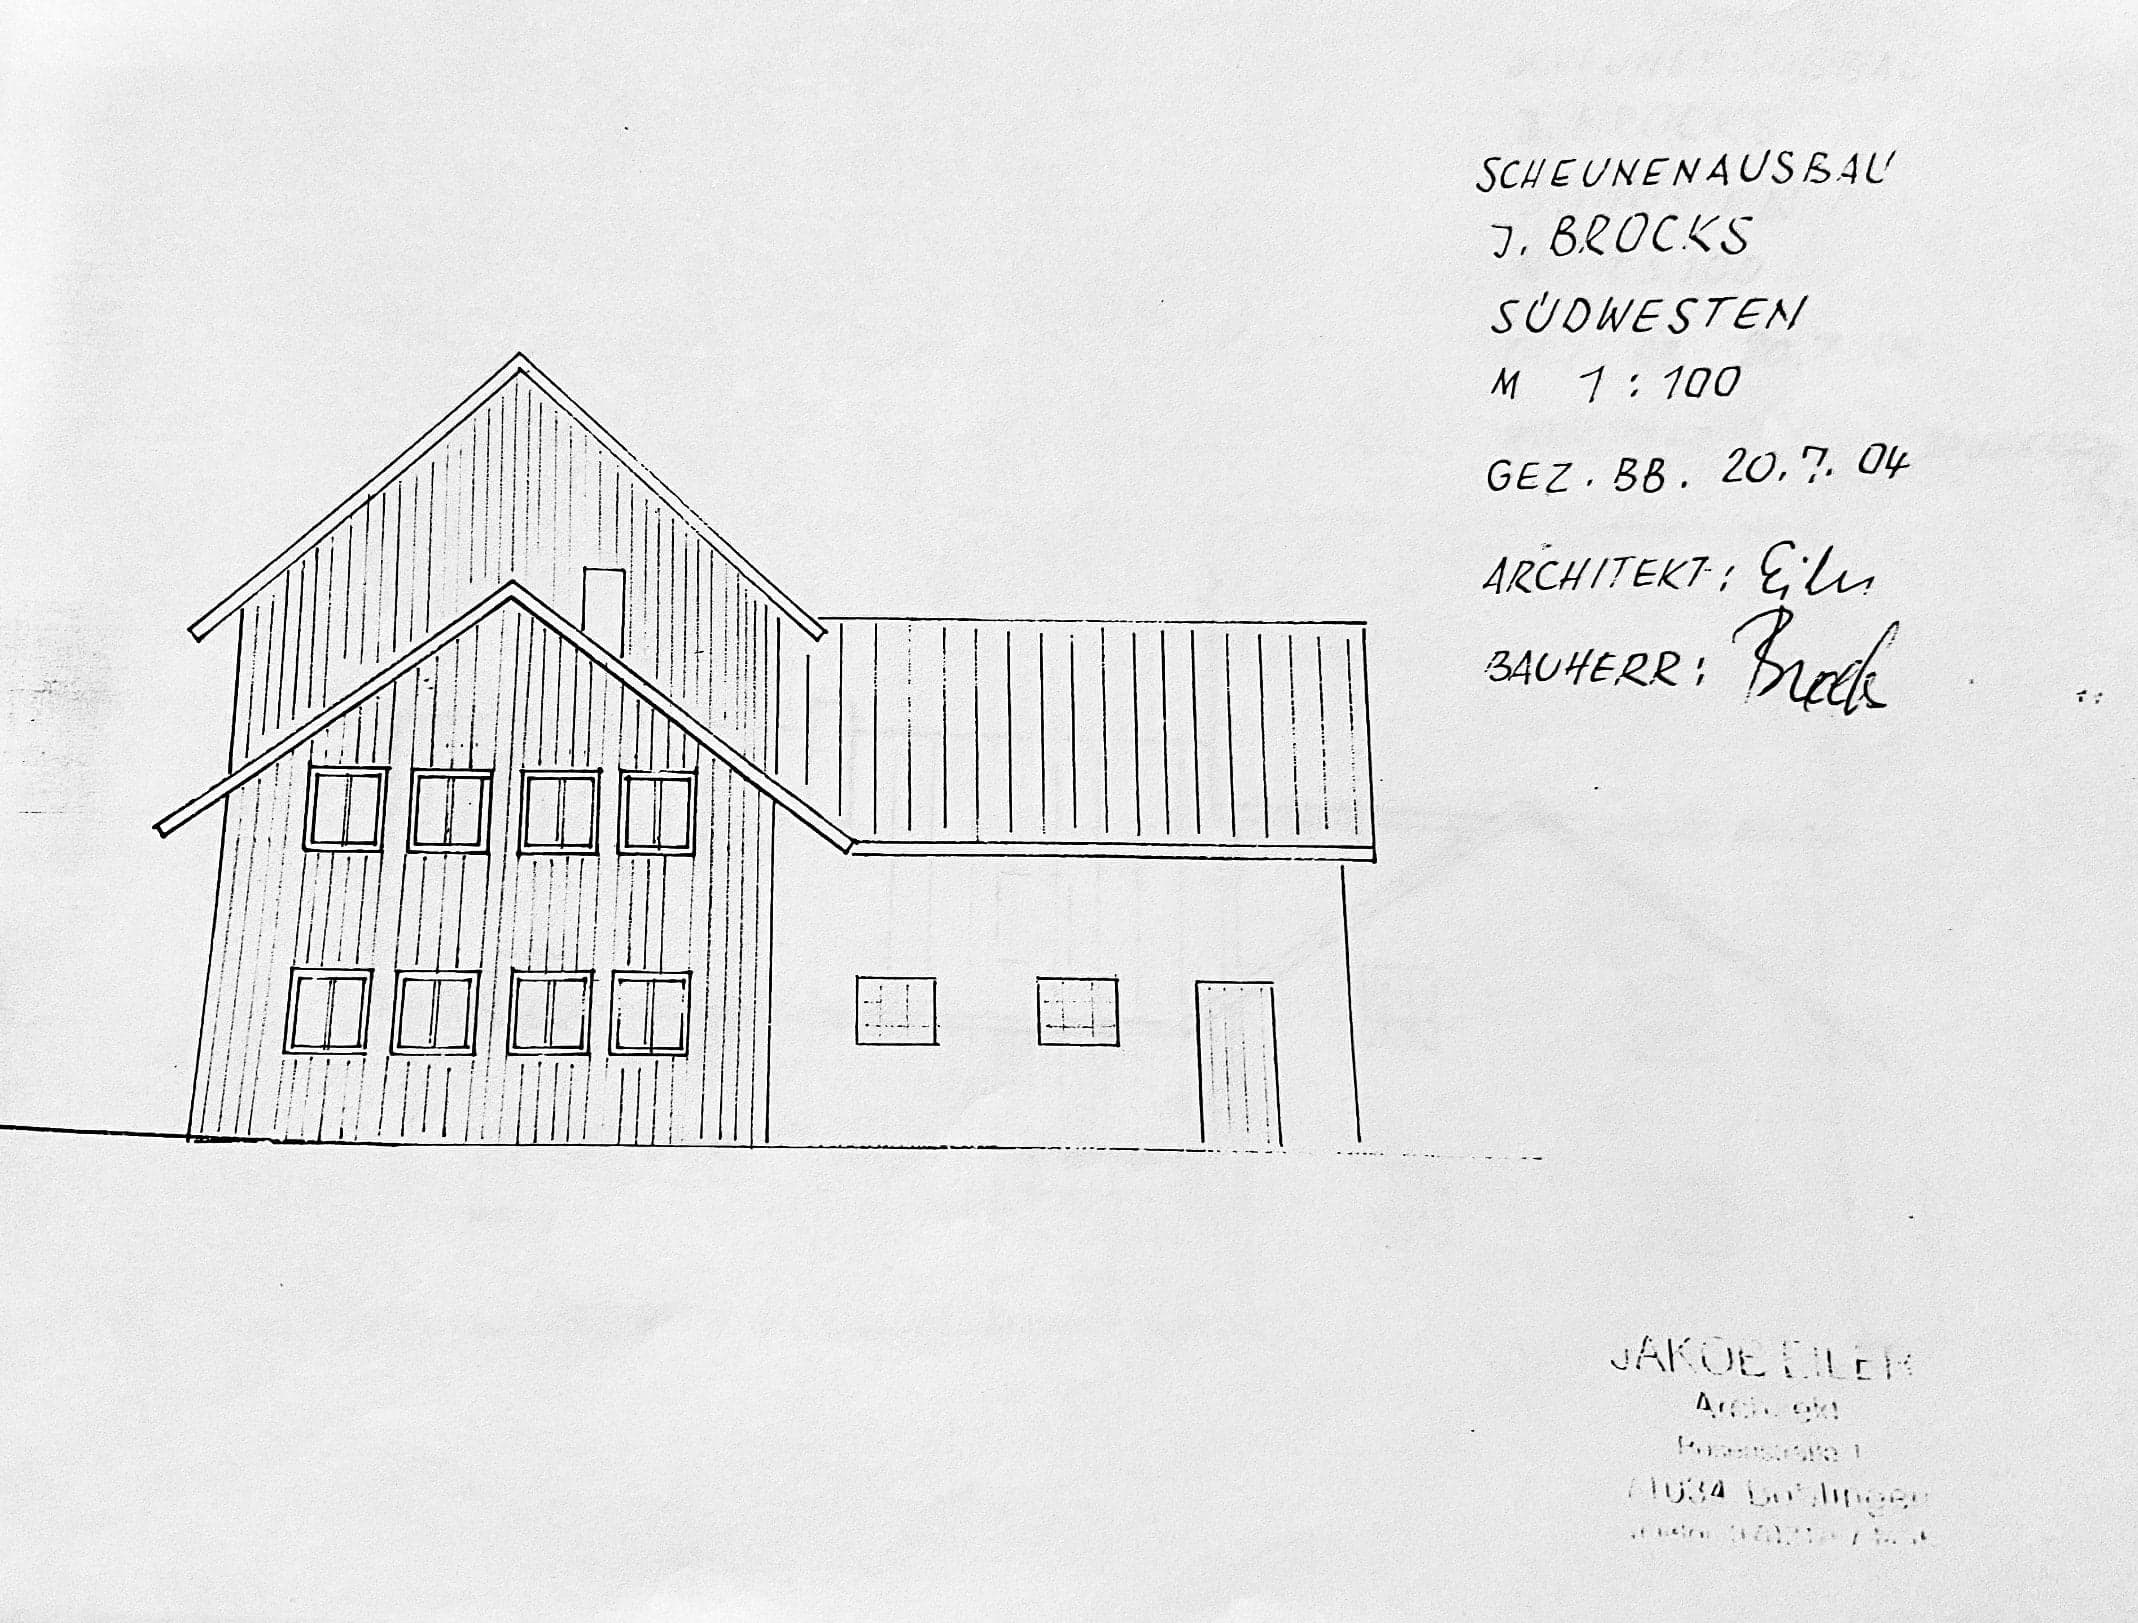 SCHEUNENAUSBAU
J. BROCKS
SÜDWESTEN
M 1:100
GEZ. BB. 20.7.04
ARCHITEKT: Eiler
BAUHERR: Brocks
JAKOB EILER
Architekt